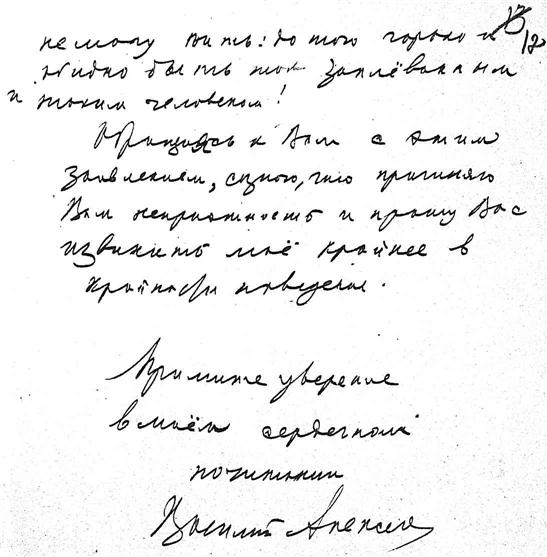 не могу жить: до того горько и
обидно быть так заплёванным
и таким человеком!
Обращаясь к Вам с этим
заявлением, сознаю, что причиняю
Вам неприятность и прошу Вас
извинить моё крайнее в
крайности поведение.
Примите уверение
в моём сердечном
почитании
Василий Алексеев